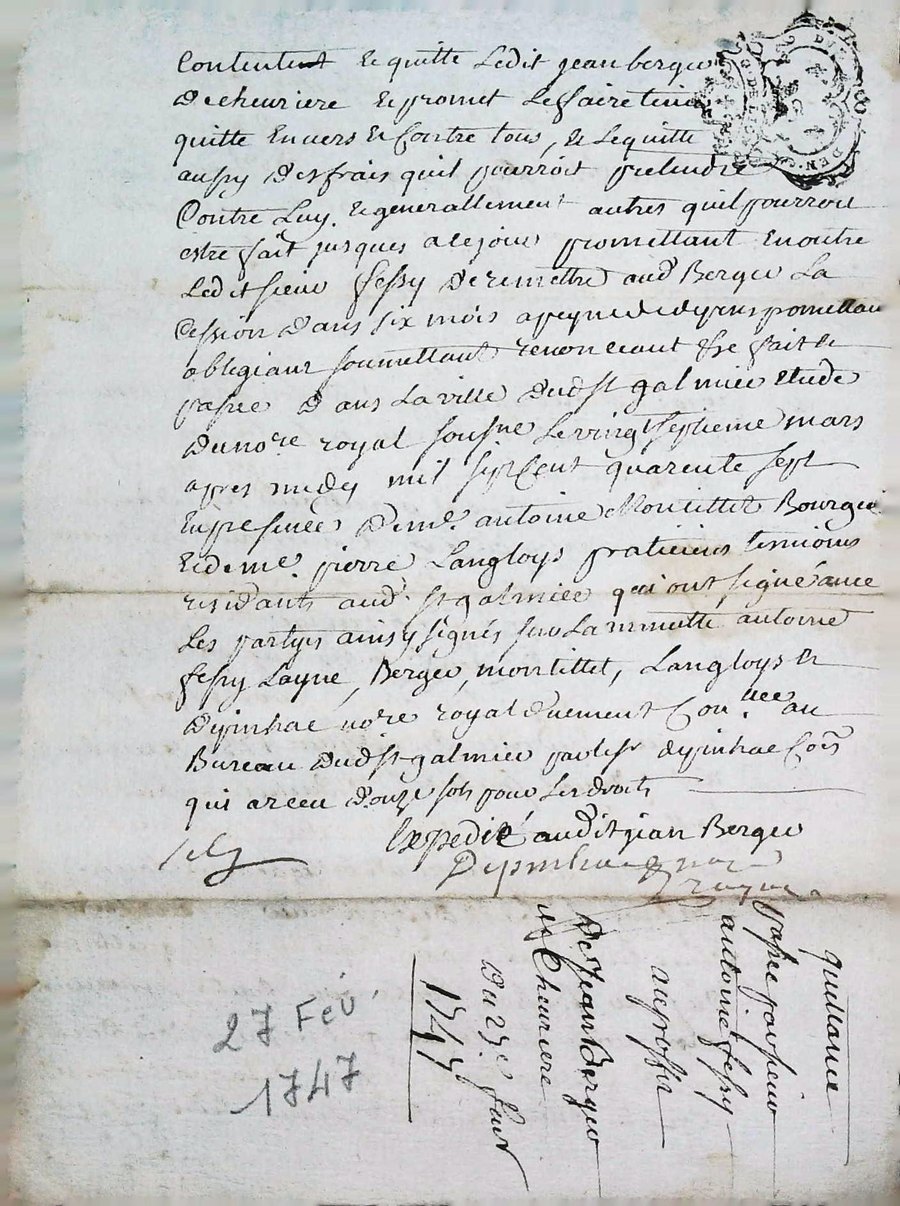 Contentent et quitte Ledit jean berger
De cheuriere et promet Le faire tenir
quitte enuers et Contre tous, et Le quitte
aussy des frais quil pourroit pretendre
Contre Luy, et generallement autres quil pourroit
estre fait jusques a ce jour promettant en outre
Ledit sieur fessy de remettre aud Berger La
Cession dans six mois a peyne de depens promettant
obligeant soumettant renonceant &c fait et
passé dans La ville dud st galmier etude
du nore royal sousne Le vingt septieme mars
apres midy mil sept Cent quarente sept
En presence de me antoine Montillet Bourgeois
et de me pierre Langloys praticiens temoins
residants aud st galmier qui ont signé auec
Les partyes ainsy signés sur La minutte antoine
fessy Layné, Berger, montillet, Langloys et
depinhac nore royal duement Con
au
Bureau dud st galmier par le sr depinhac
qui a receu douze sols pour Les droits
Expedié audit jean Berger
Depinhac
quittance
passée par sieur
antoine fessy
au proffit
De Jean Berger
de Cheuriere
Du 27e feur
1747
27 Fév.
1747